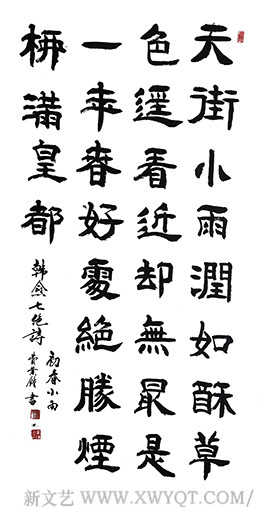 天街小雨潤如酥草
色遥看近却無最是
一年春好處絶勝煙
柳滿皇都
韓愈七绝詩
初春小雨
書
新文艺 WWW.XWYQT.COM/